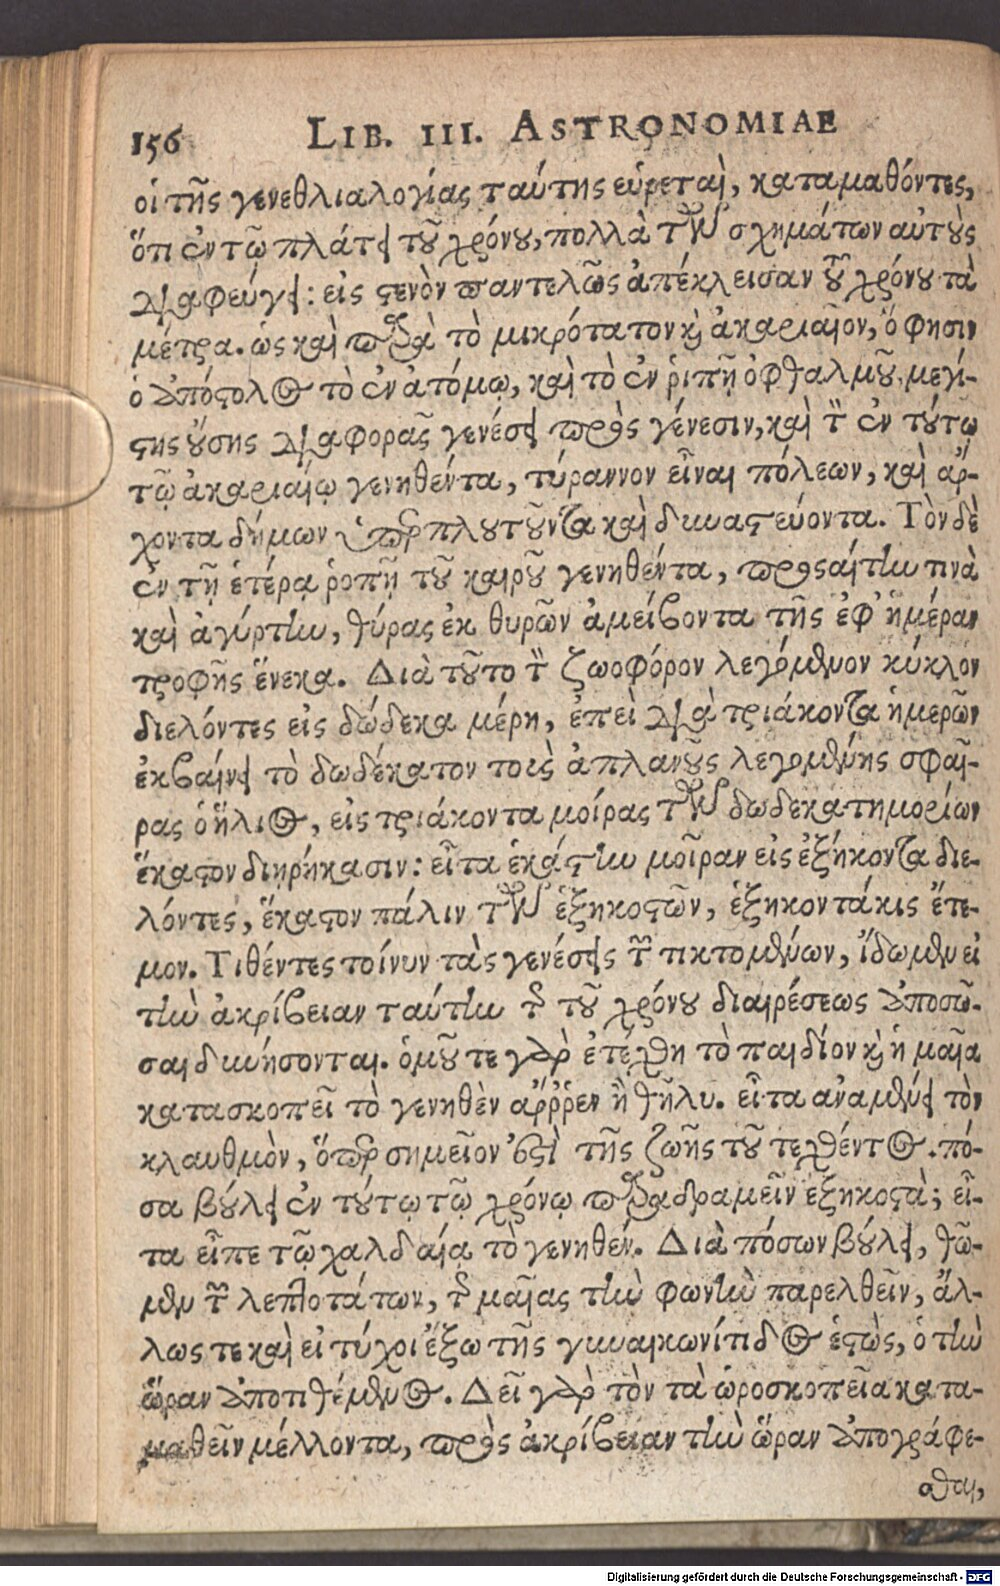 156 LIB. III. ASTRONOMIAE
οἱ τῆς γενεθλιαλογίας ταύτης εὑρεταὶ, καταμαθόντες,
ὅτι ἐν τῷ πλάτει τοῦ χρόνου, πολλὰ τῶν σχημάτων αὐτοὺς
διαφεύγει: εἰς στενὸν παντελῶς ἀπέκλεισαν τοῦ χρόνου τὰ
μέτρα. ὡς καὶ παρὰ τὸ μικρότατον καὶ ἀκαριαῖον, ὅ φησιν
ὁ ἀπόστολος τὸ ἐν ἀτόμῳ, καὶ τὸ ἐν ῥιπῇ ὀφθαλμοῦ, μεγί-
στης οὔσης διαφορᾶς γενέσει πρὸς γένεσιν, καὶ τὸν ἐν τούτῳ
τῷ ἀκαριαίῳ γενηθέντα, τύραννον εἶναι πόλεων, καὶ ἄρ-
χοντα δήμων ὑπερπλουτοῦντα καὶ δυναστεύοντα. Τὸν δὲ
ἐν τῇ ἑτέρᾳ ῥοπῇ τοῦ καιροῦ γενηθέντα, προσαίτην τινὰ
καὶ ἀγύρτην, θύρας ἐκ θυρῶν ἀμείβοντα τῆς ἐφ' ἡμέραν
τροφῆς ἕνεκα. Διὰ τοῦτο τὸν ζωοφόρον λεγόμενον κύκλον
διελόντες εἰς δώδεκα μέρη, ἐπεὶ διὰ τριάκοντα ἡμερῶν
ἐκβαίνει τὸ δωδέκατον τοῖς ἀπλανοῦς λεγομένης σφαί-
ρας ὁ ἥλιος, εἰς τριάκοντα μοίρας τῶν δωδεκατημορίων
ἕκαστον διῃρήκασιν: εἶτα ἑκάστην μοῖραν εἰς ἑξήκοντα διε-
λόντες, ἕκαστον πάλιν τῶν ἑξηκοστῶν, ἑξηκοντάκις ἔτε-
μον. Τιθέντες τοίνυν τὰς γενέσεις τῶν τικτομένων, ἴδωμεν εἰ
τὴν ἀκρίβειαν ταύτην τῆς τοῦ χρόνου διαιρέσεως ἀποσῶ-
σαι δυνήσονται. ὁμοῦ τε γὰρ ἐτέχθη τὸ παιδίον καὶ ἡ μαῖα
κατασκοπεῖ τὸ γενηθὲν ἄῤῥεν ἢ θῆλυ. εἶτα ἀναμένει τὸν
κλαυθμὸν, ὅπερ σημεῖον ἐστὶ τῆς ζωῆς τοῦ τεχθέντος. πό-
σα βούλει ἐν τούτῳ τῷ χρόνῳ παραδραμεῖν ἑξηκοστὰ; εἶ-
τα εἶπε τῷ χαλδαίῳ τὸ γενηθέν. Διὰ πόσων βούλει, θῶ-
μεν τῶν λεπτοτάτων, τῆς μαίας τὴν φωνὴν παρελθεῖν, ἄλ-
λως τε καὶ εἰ τύχοι ἔξω τῆς γυναικωνίτιδος ἑστὼς, ὁ τὴν
ὥραν ἀποτιθέμενος. Δεῖ γὰρ τὸν τὰ ὡροσκοπεῖα κατα-
μαθεῖν μέλλοντα, πρὸς ἀκρίβειαν τὴν ὥραν ἀπογράφε-
σθαι,
Digitalisierung gefördert durch die Deutsche Forschungsgemeinschaft - DFG